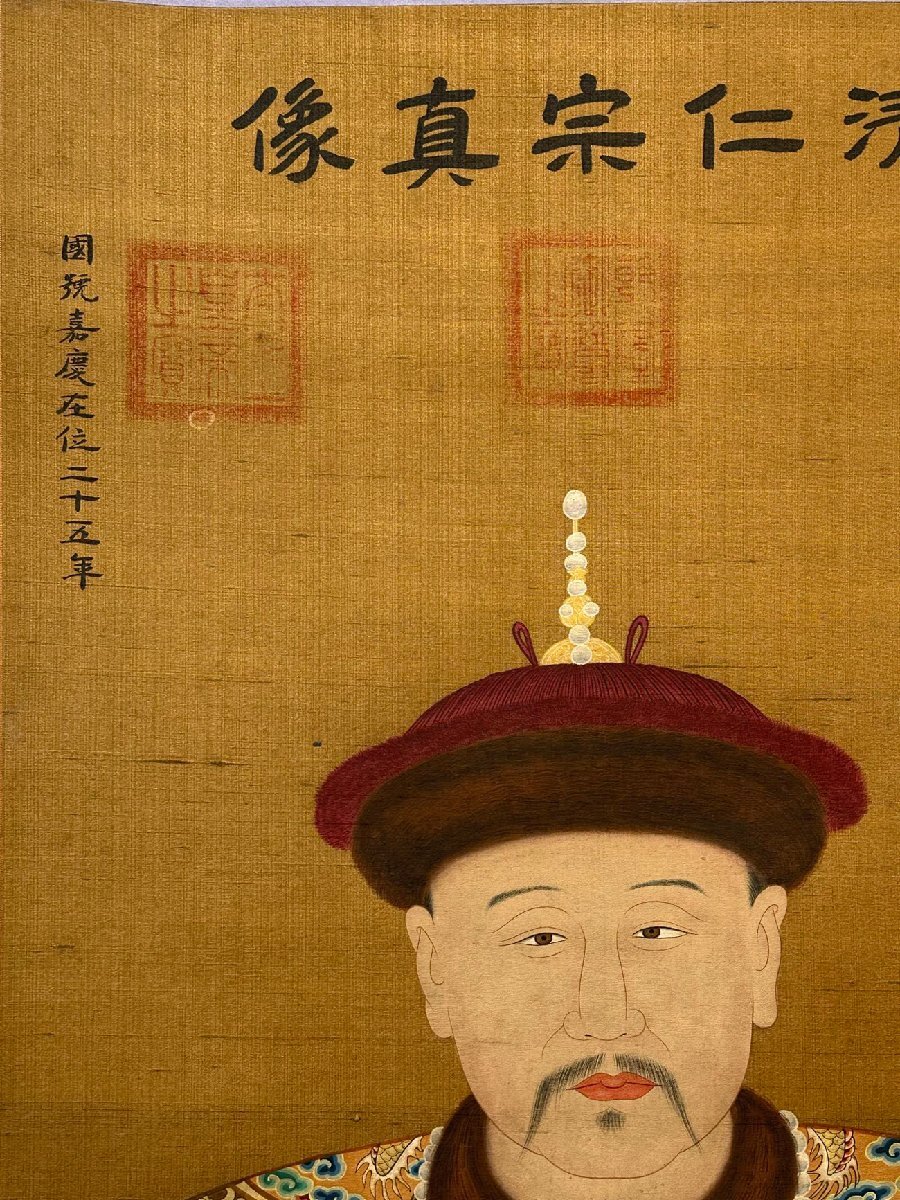 清仁宗真像
國號嘉慶在位二十五年